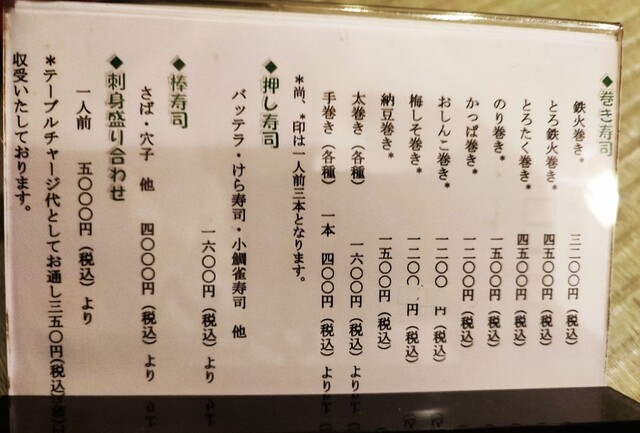 ◆巻き寿司
鉄火巻き* 三二〇〇円(税込)
とろ鉄火巻き* 四五〇〇円(税込)
とろたく巻き* 四五〇〇円(税込)
のり巻き* 一五〇〇円(税込)
かっぱ巻き* 一二〇〇円(税込)
おしんこ巻き* 一二〇〇 円(税込)
梅しそ巻き* 一二〇〇 円(税込)
納豆巻き* 一五〇〇円(税込)
太巻き(各種) 一六〇〇円(税込)より
手巻き(各種) 一本 四〇〇円(税込)より
*尚、*印は一人前三本となります。
◆押し寿司
バッテラ・けら寿司・小鯛雀寿司 他
一六〇〇円(税込)より
◆棒寿司
さば・穴子 他 四〇〇〇円(税込)より
◆刺身盛り合わせ
一人前 五〇〇〇円(税込)より
*テーブルチャージ代としてお通し三五〇円(税込)
収受いたしております。